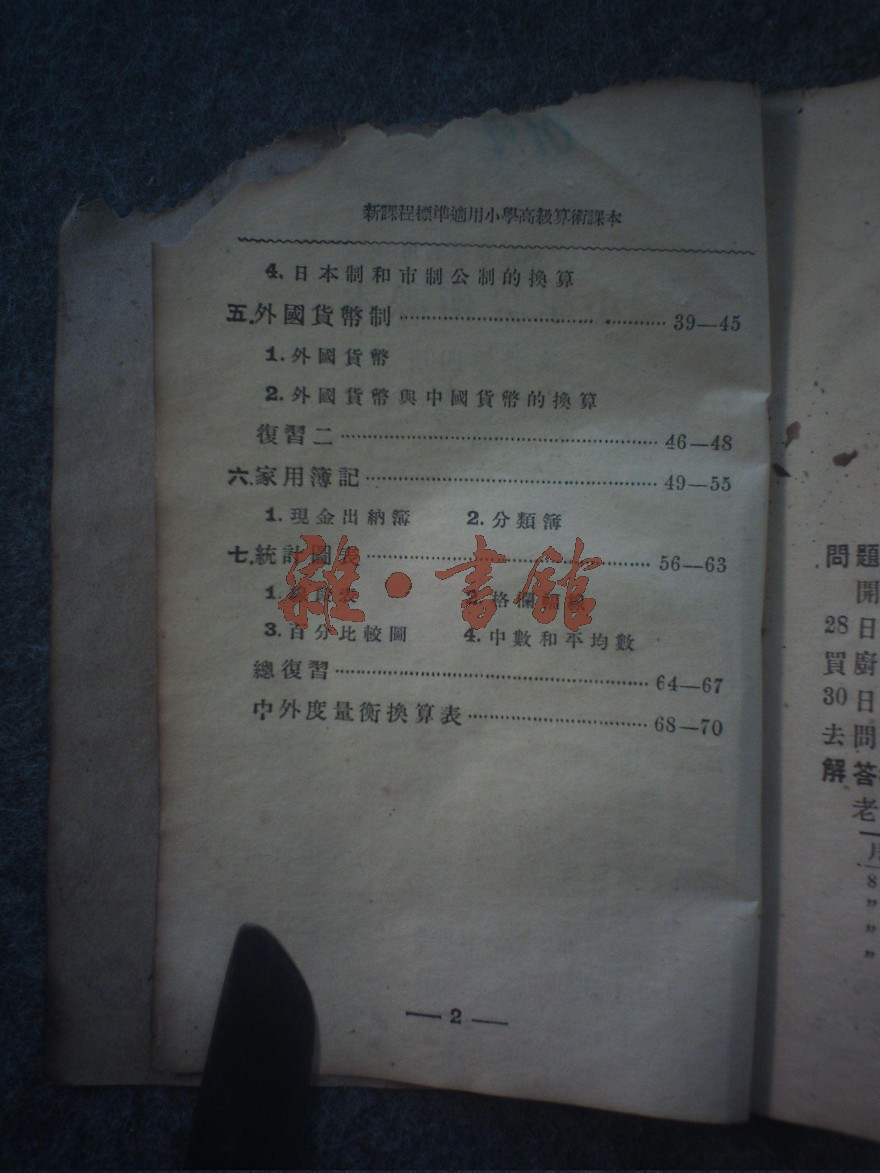 新課程標準適用小學高級算術課本
4. 日本制和市制公制的換算
五. 外國貨幣制……39—45
1. 外國貨幣
2. 外國貨幣與中國貨幣的換算
復習二……46—48
六. 家用簿記……49—55
1. 現金出納簿 2. 分類簿
七. 統計圖表……56—63
1. 2. 格欄
3. 百分比較圖 4. 中數和平均數
總復習……64—67
中外度量衡換算表……68—70
— 2 —
雜·書館
問題
開
28日
買廚
30日
去問
解答
老
月
8
”
”
”